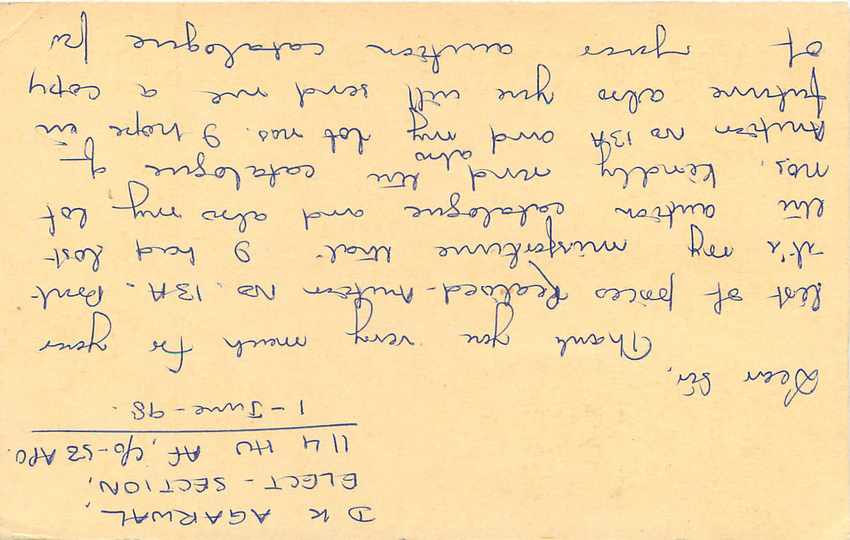 D K AGARWAL,
ELECT - SECTION,
114 HU AF, C/o-53 APO.
1 - June - 98.
Dear Sir,
Thank you very much for your
list of prices Realised - Auction No. 13A.
it's my misfortune that I had lost
the auction catalogue and also my lot
nos. kindly send the catalogue of
Auction no 13A and my also lot nos. I hope in
future also you will send me a copy
of your auction catalogue for